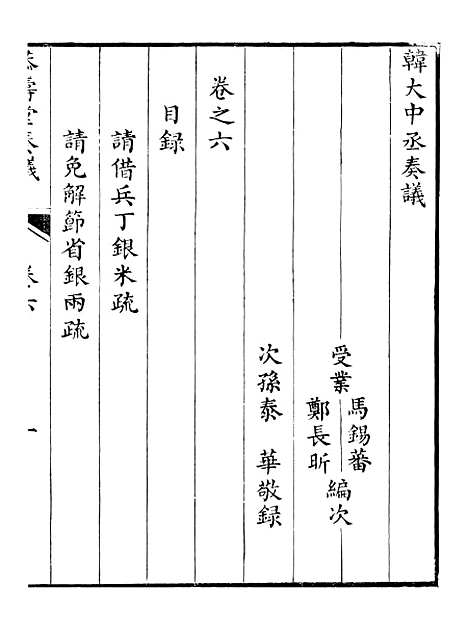 韓大中丞奏議
受業
馬錫蕃
鄭長昕
編次
次孫泰華敬録
卷之六
目録
請借兵丁銀米疏
請免解節省銀兩疏
卷六
一